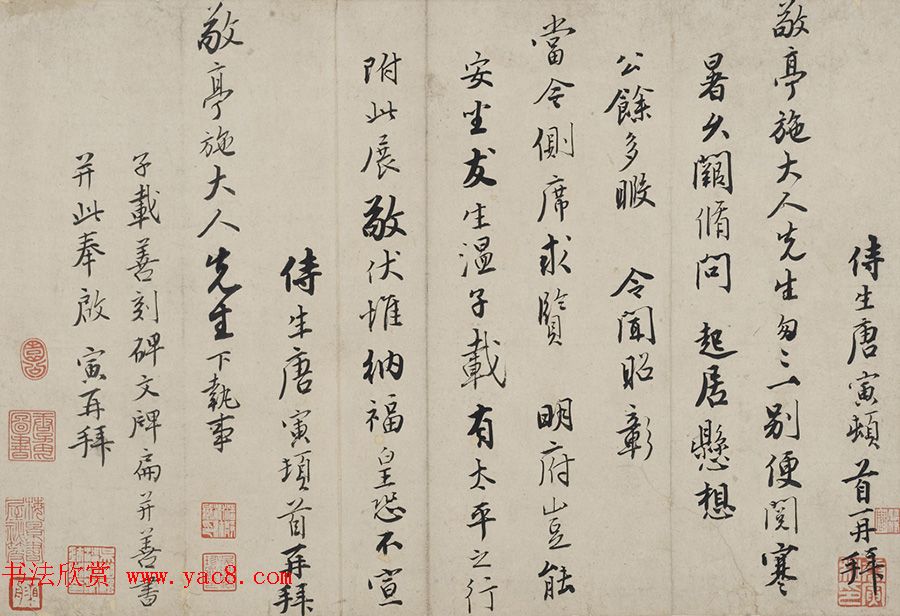 侍生唐寅頓首再拜
敬亭施大人先生匆〻一別便閱寒
暑久闊脩問 起居懸想
公餘多暇 令聞昭彰
當今側席求賢 明府豈能
安坐友生溫子載有太平之行
附此展敬伏惟納福皇恐不宣
侍生唐寅頓首再拜
敬亭施大人先生下執事
子載善刻碑文牌扁并善書
并此奉啟 寅再拜
书法欣赏 www.yac8.com